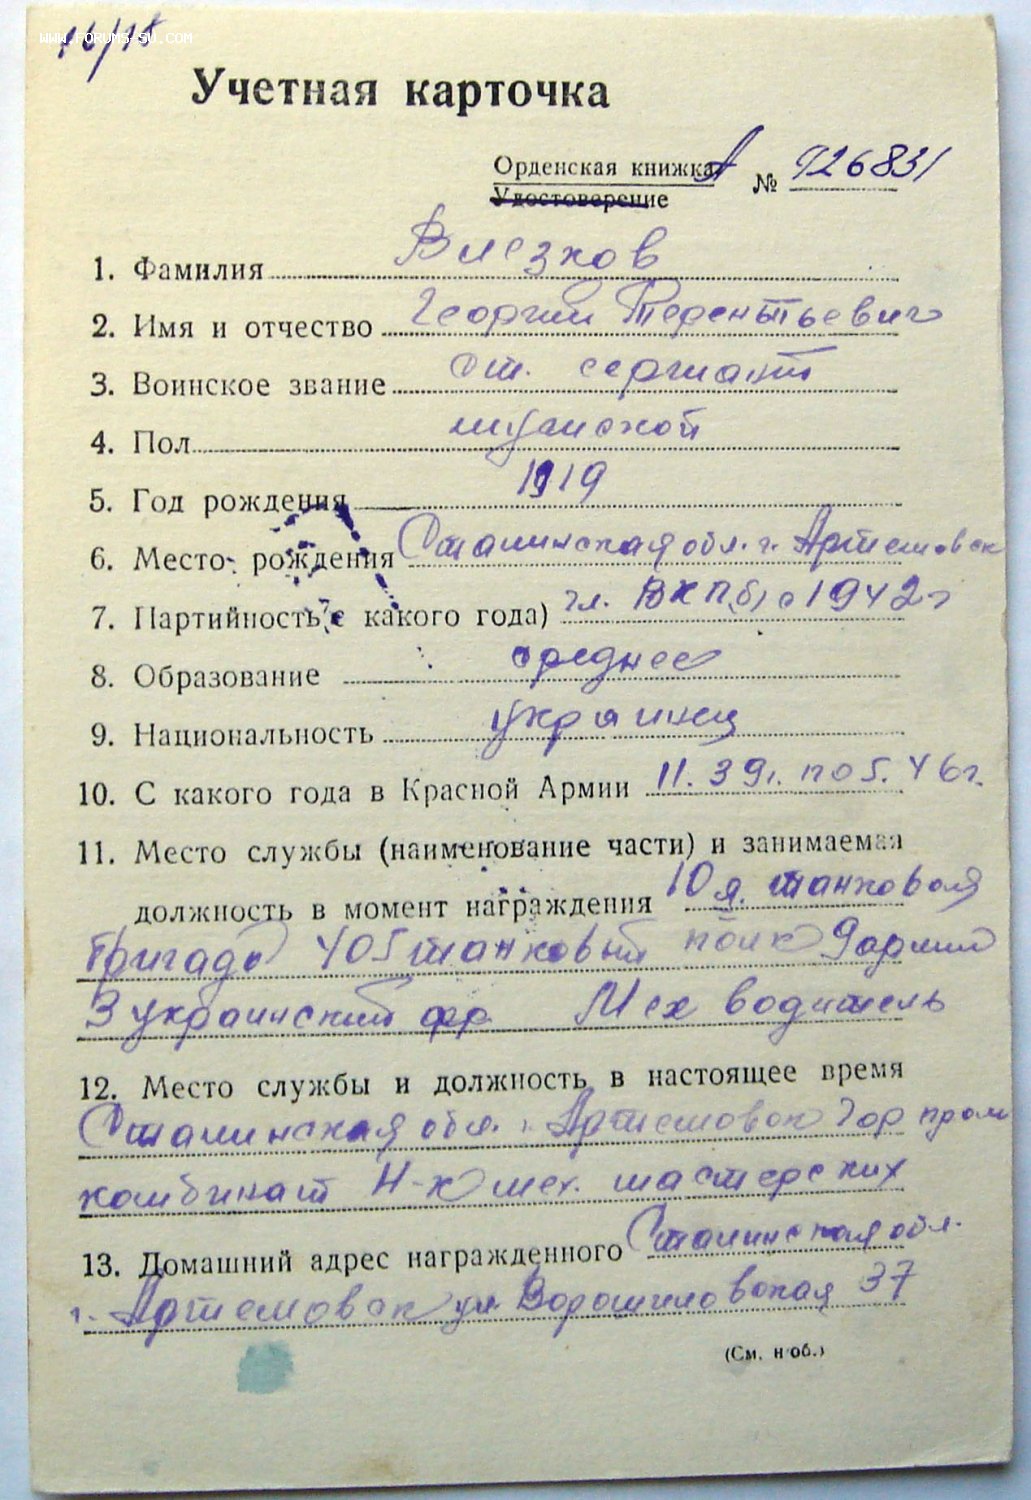 WWW.FORUMS-SU.COM
Учетная карточка
Орденская книжка А № 926831
Удостоверение
1. Фамилия
2. Имя и отчество Георгий Терентьевич
3. Воинское звание ст. сержант
4. Пол мужской
5. Год рождения 1919
6. Место рождения Сталинская обл. г. Артемовск
7. Партийность (с какого года) чл. ВКП(б) с 1942 г
8. Образование среднее
9. Национальность украинец
10. С какого года в Красной Армии 11.39г. по 5.46г.
11. Место службы (наименование части) и занимаемая
должность в момент награждения 10я танковая
бригада 405 танковый полк 9 армии
3 украинский фр Мех водитель
12. Место службы и должность в настоящее время
Сталинская обл. г. Артемовск Гор пром
комбинат Н-к мех. мастерских
13. Домашний адрес награжденного Сталинская обл.
г. Артемовск ул. Ворошиловская 37
(См. н об.)